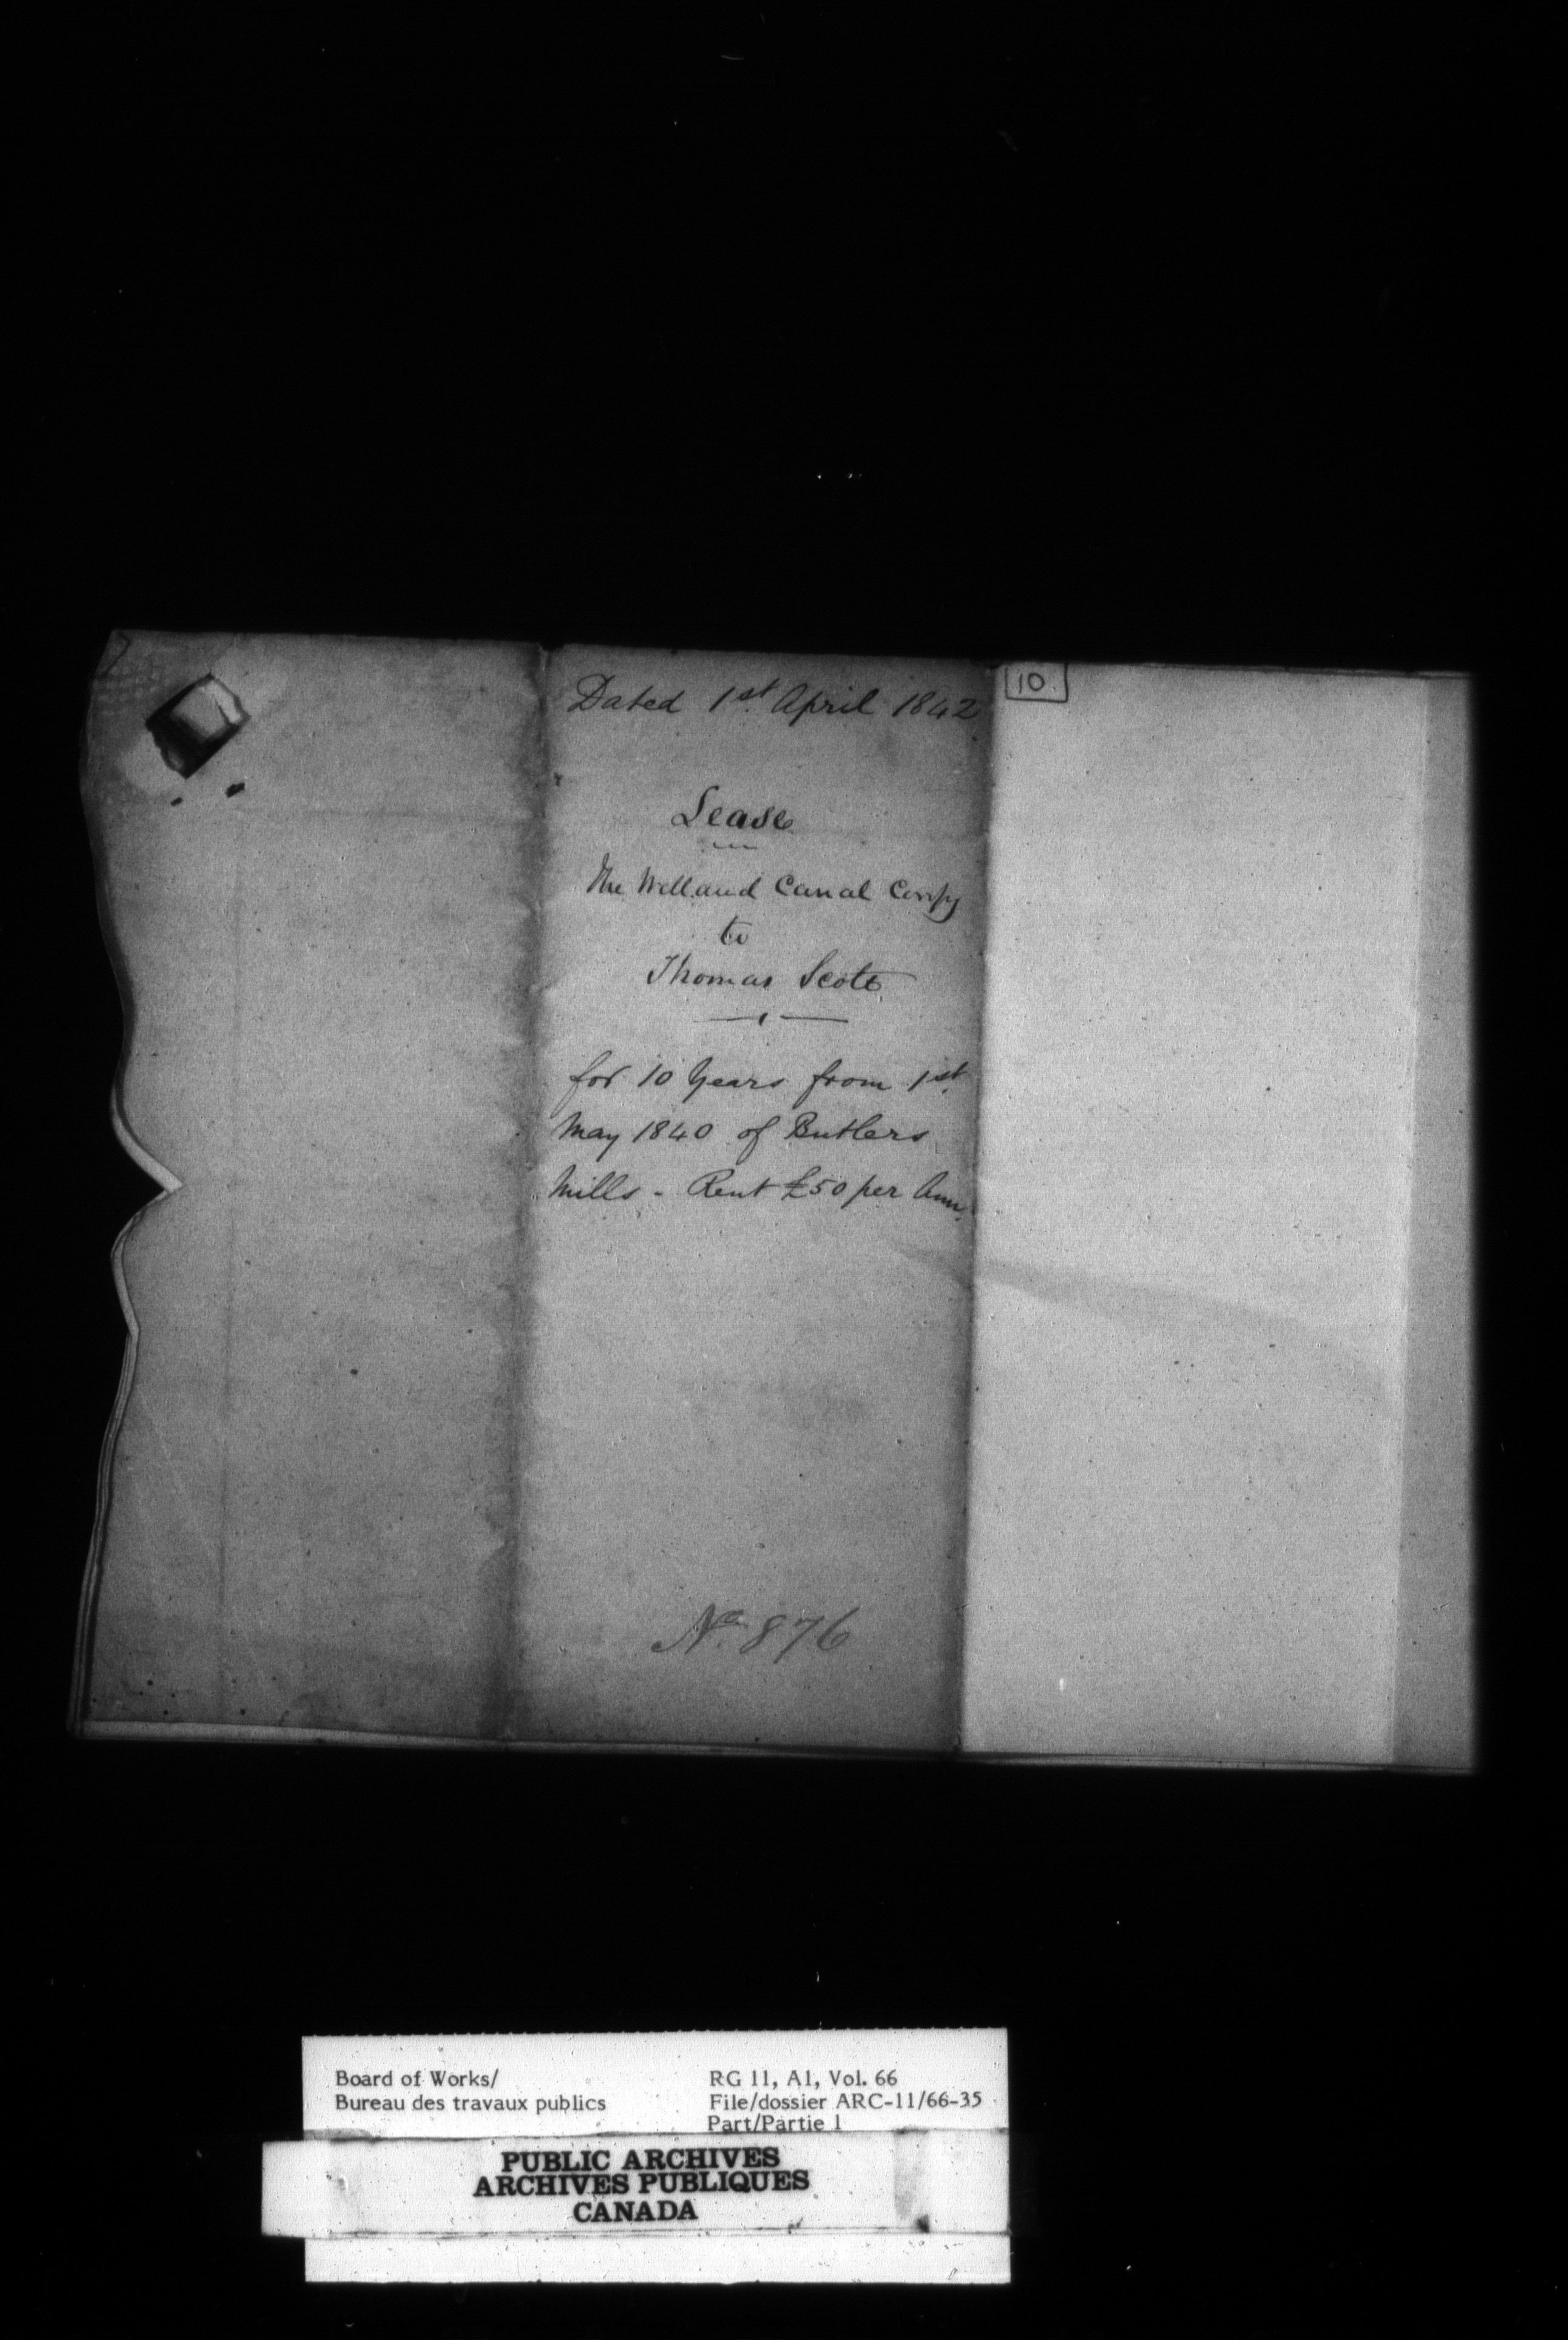 Dated 1st April 1842
10
Lease
The Welland Canal Compy
to
Thomas Scott
for 10 Years from 1st
May 1840 of Butlers
Mills - Rent £50 per Ann.
No. 876
Board of Works/
Bureau des travaux publics
RG 11, A1, Vol. 66
File/dossier ARC-11/66-35
Part/Partie 1
PUBLIC ARCHIVES
ARCHIVES PUBLIQUES
CANADA